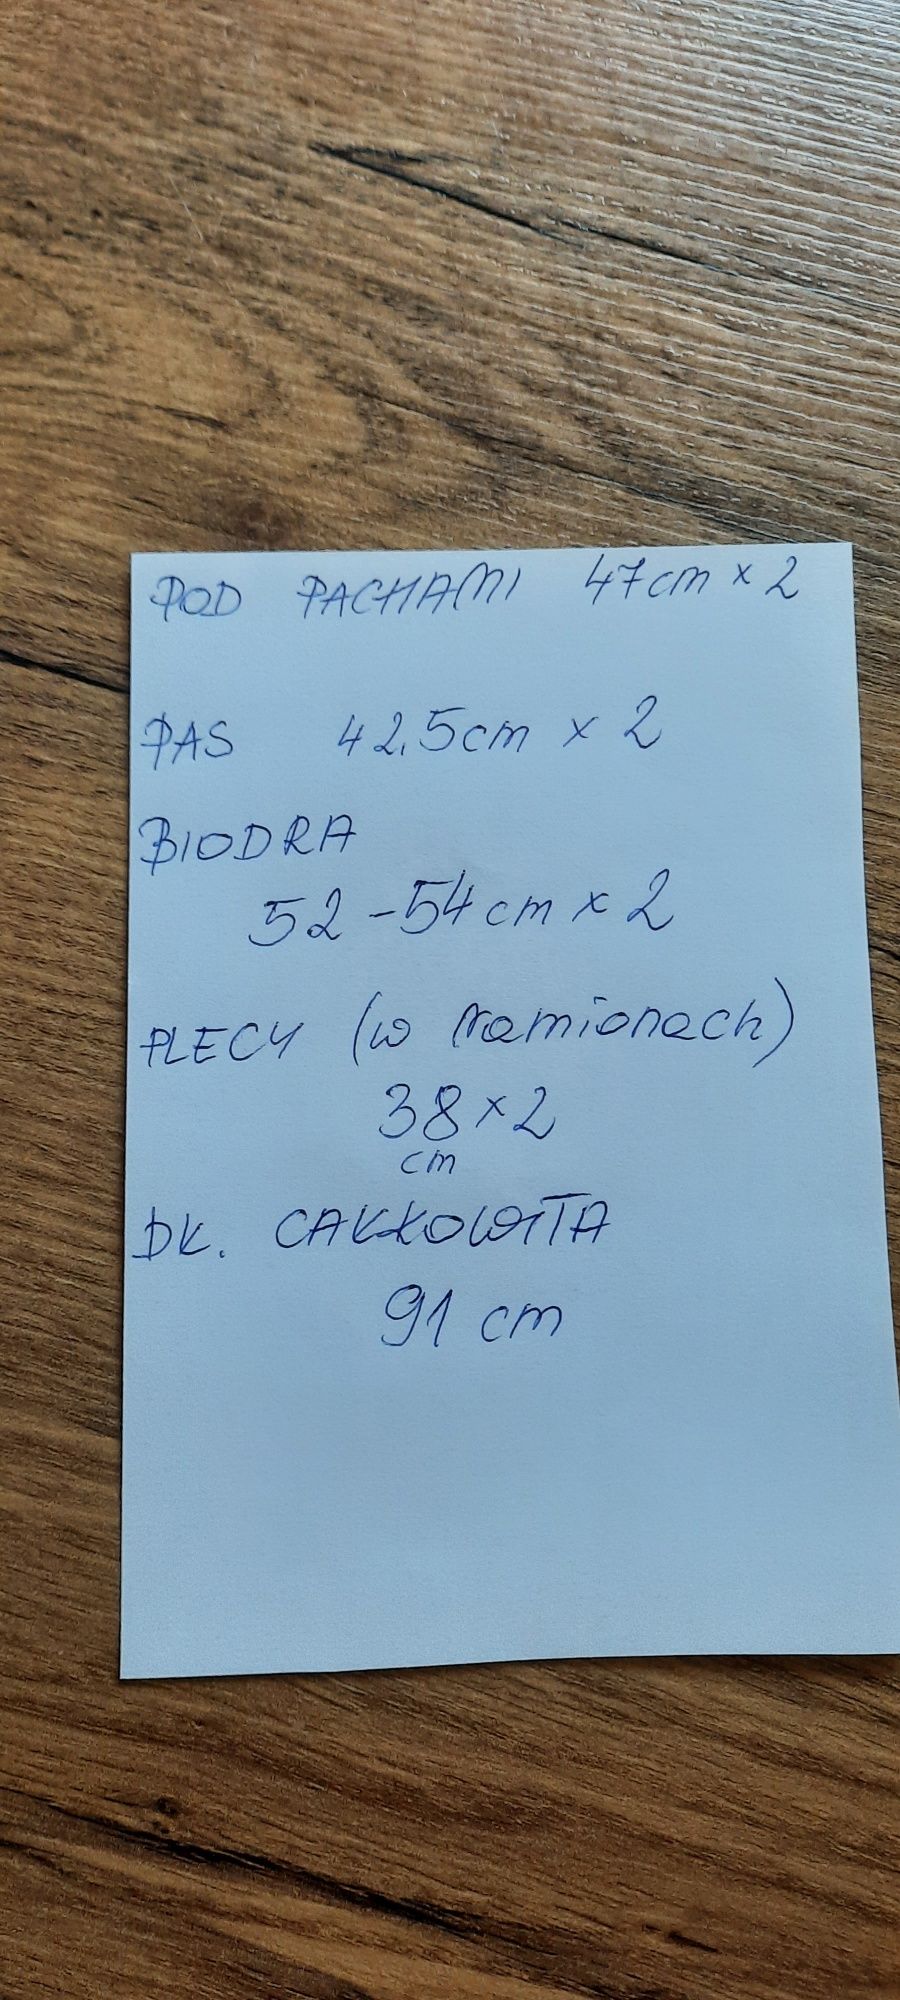 POD PACHAMI 47cm x 2
PAS 42,5cm x 2
BIODRA
52-54cm x 2
PLECY (w ramionach)
38 x 2
cm
DŁ. CAŁKOWITA
91 cm